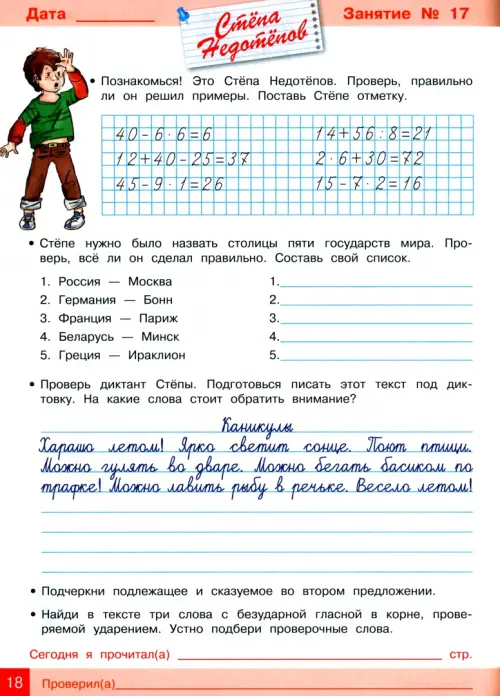 Дата
Стёпа Недотёпов
Занятие № 17
• Познакомься! Это Стёпа Недотёпов. Проверь, правильно
ли он решил примеры. Поставь Стёпе отметку.
40 - 6 · 6 = 6
14 + 56 : 8 = 21
12 + 40 - 25 = 37
2 · 6 + 30 = 72
45 - 9 · 1 = 26
15 - 7 · 2 = 16
• Стёпе нужно было назвать столицы пяти государств мира. Про-
верь, всё ли он сделал правильно. Составь свой список.
1. Россия — Москва 1.
2. Германия — Бонн 2.
3. Франция — Париж 3.
4. Беларусь — Минск 4.
5. Греция — Ираклион 5.
• Проверь диктант Стёпы. Подготовься писать этот текст под дик-
товку. На какие слова стоит обратить внимание?
Каникулы
Харашо летом! Ярко светит сонце. Поют птици.
Можно гулять во дваре. Можно бегать басиком по
трафке! Можно лавить рыбу в речьке. Весело летом!
• Подчеркни подлежащее и сказуемое во втором предложении.
• Найди в тексте три слова с безударной гласной в корне, прове-
ряемой ударением. Устно подбери проверочные слова.
Сегодня я прочитал(а) стр.
18 Проверил(а)